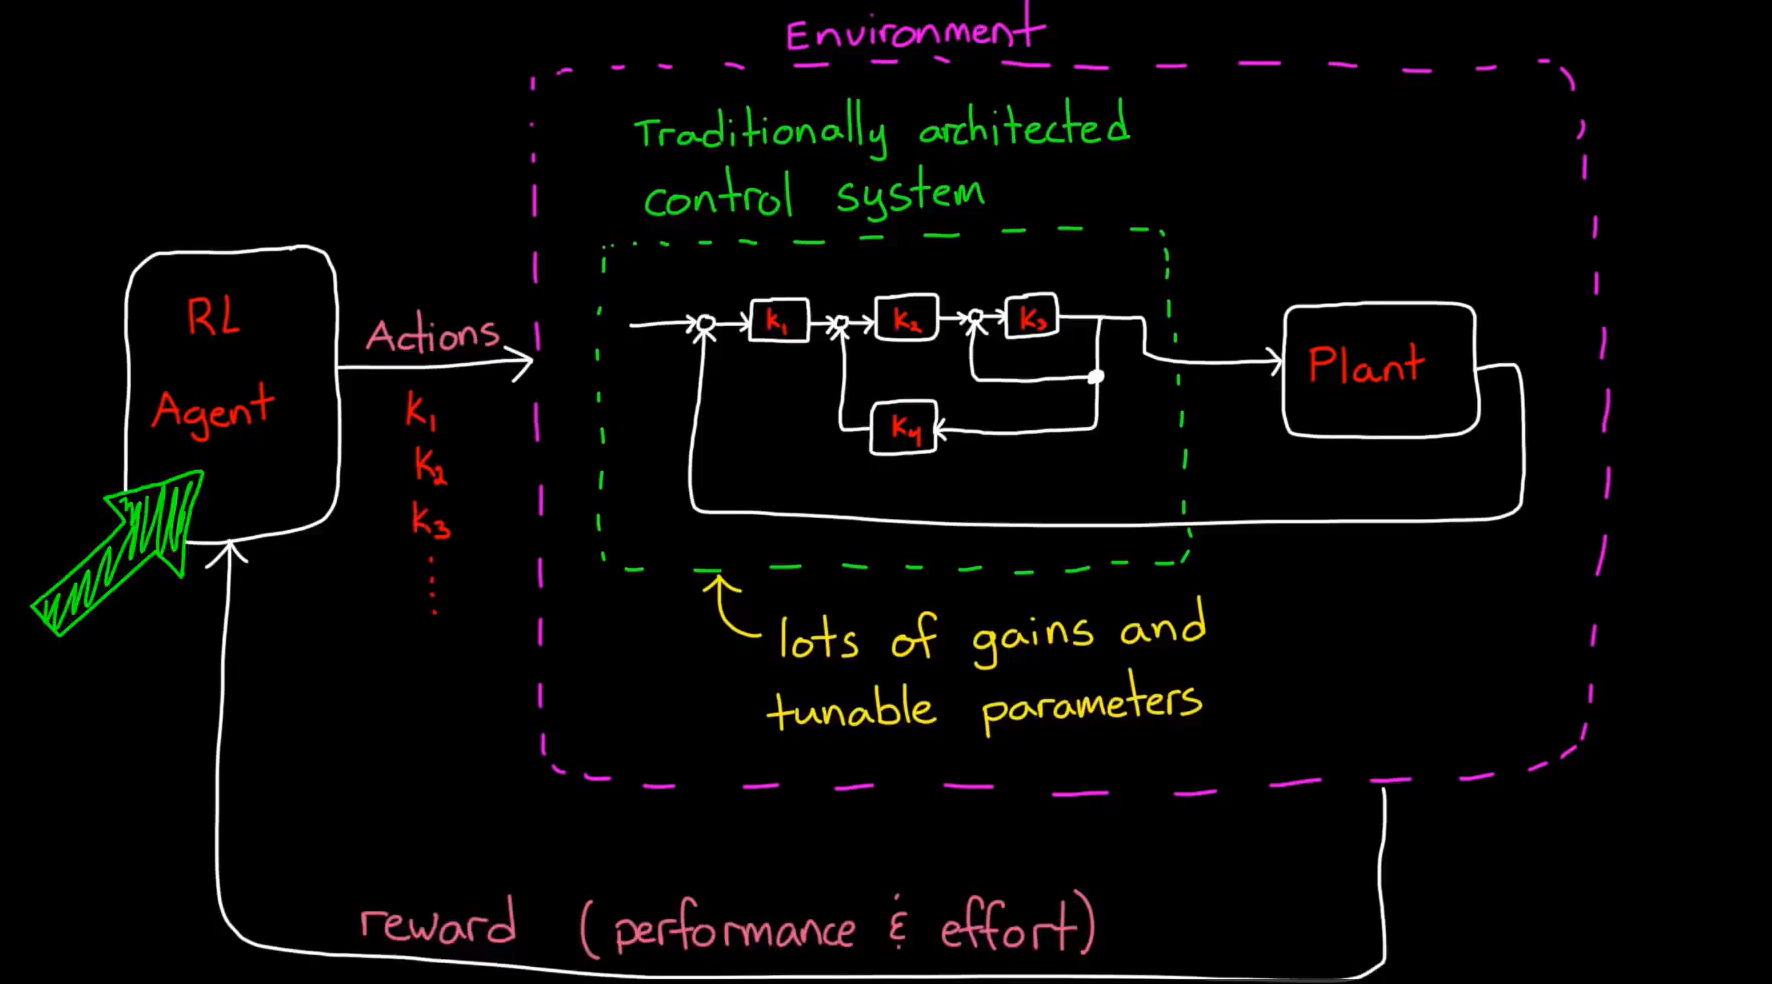 Environment
Traditionally architected
control system
RL
Agent
Actions
K1
K2
K3
K1
K2
K3
K4
Plant
lots of gains and
tunable parameters
reward (performance & effort)